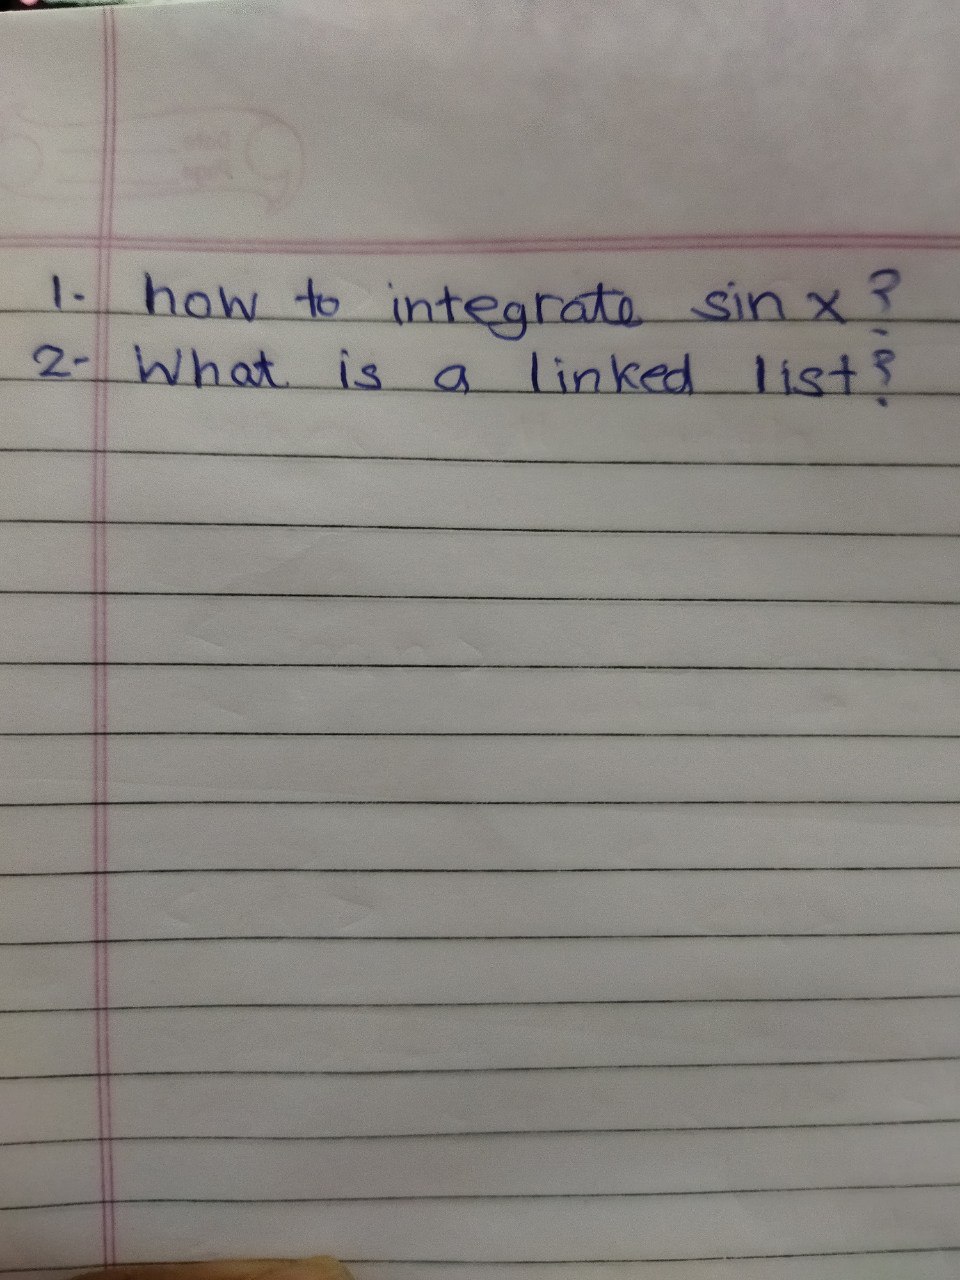 1- how to integrate sin x?
2- What is a linked list?